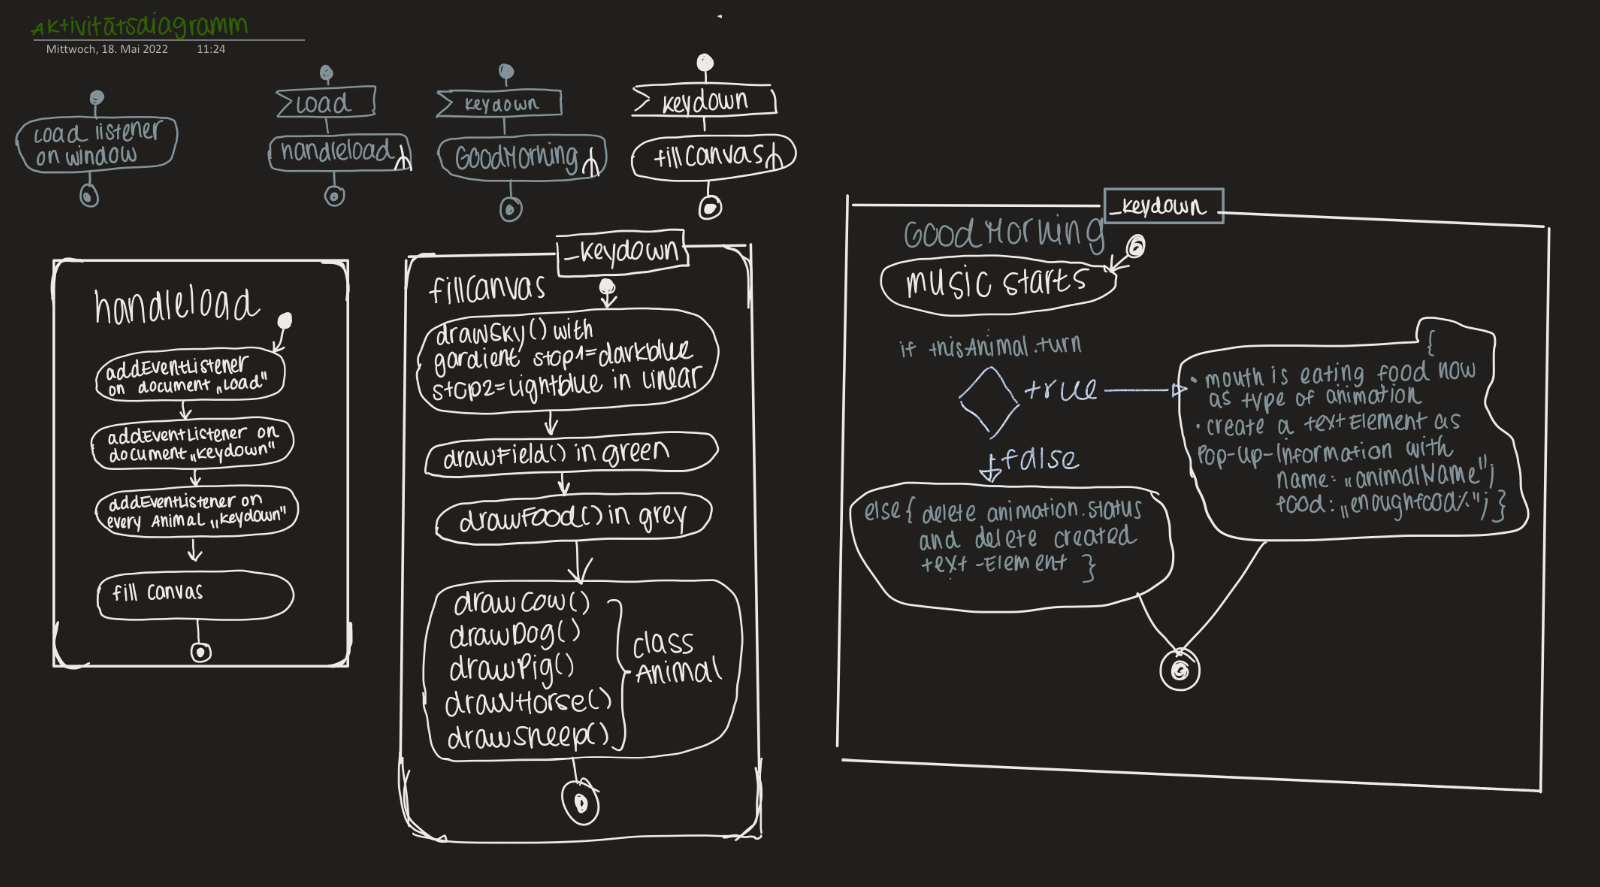 Aktivitätsdiagramm
Mittwoch, 18. Mai 2022 11:24
Load listener
on window
Load
handleload
keydown
GoodMorning
keydown
fillCanvas
handleload
addEventListener
on document „Load"
addEventListener on
document „keydown"
addEventListener on
every Animal „keydown"
fill Canvas
_keydown
fillCanvas
drawSky() with
gardient stop1=darkblue
stop2=Lightblue in Linear
drawField() in green
drawFood() in grey
drawCow()
drawDog()
drawPig()
drawHorse()
drawSheep()
class
Animal
_keydown
GoodMorning
music starts
if thisAnimal.turn
true
false
else { delete animation.status
and delete created
text-Element }
{
• mouth is eating food now
as type of animation
• create a textElement as
Pop-up-Information with
name: „animalName";
food: „enoughfood%"; }